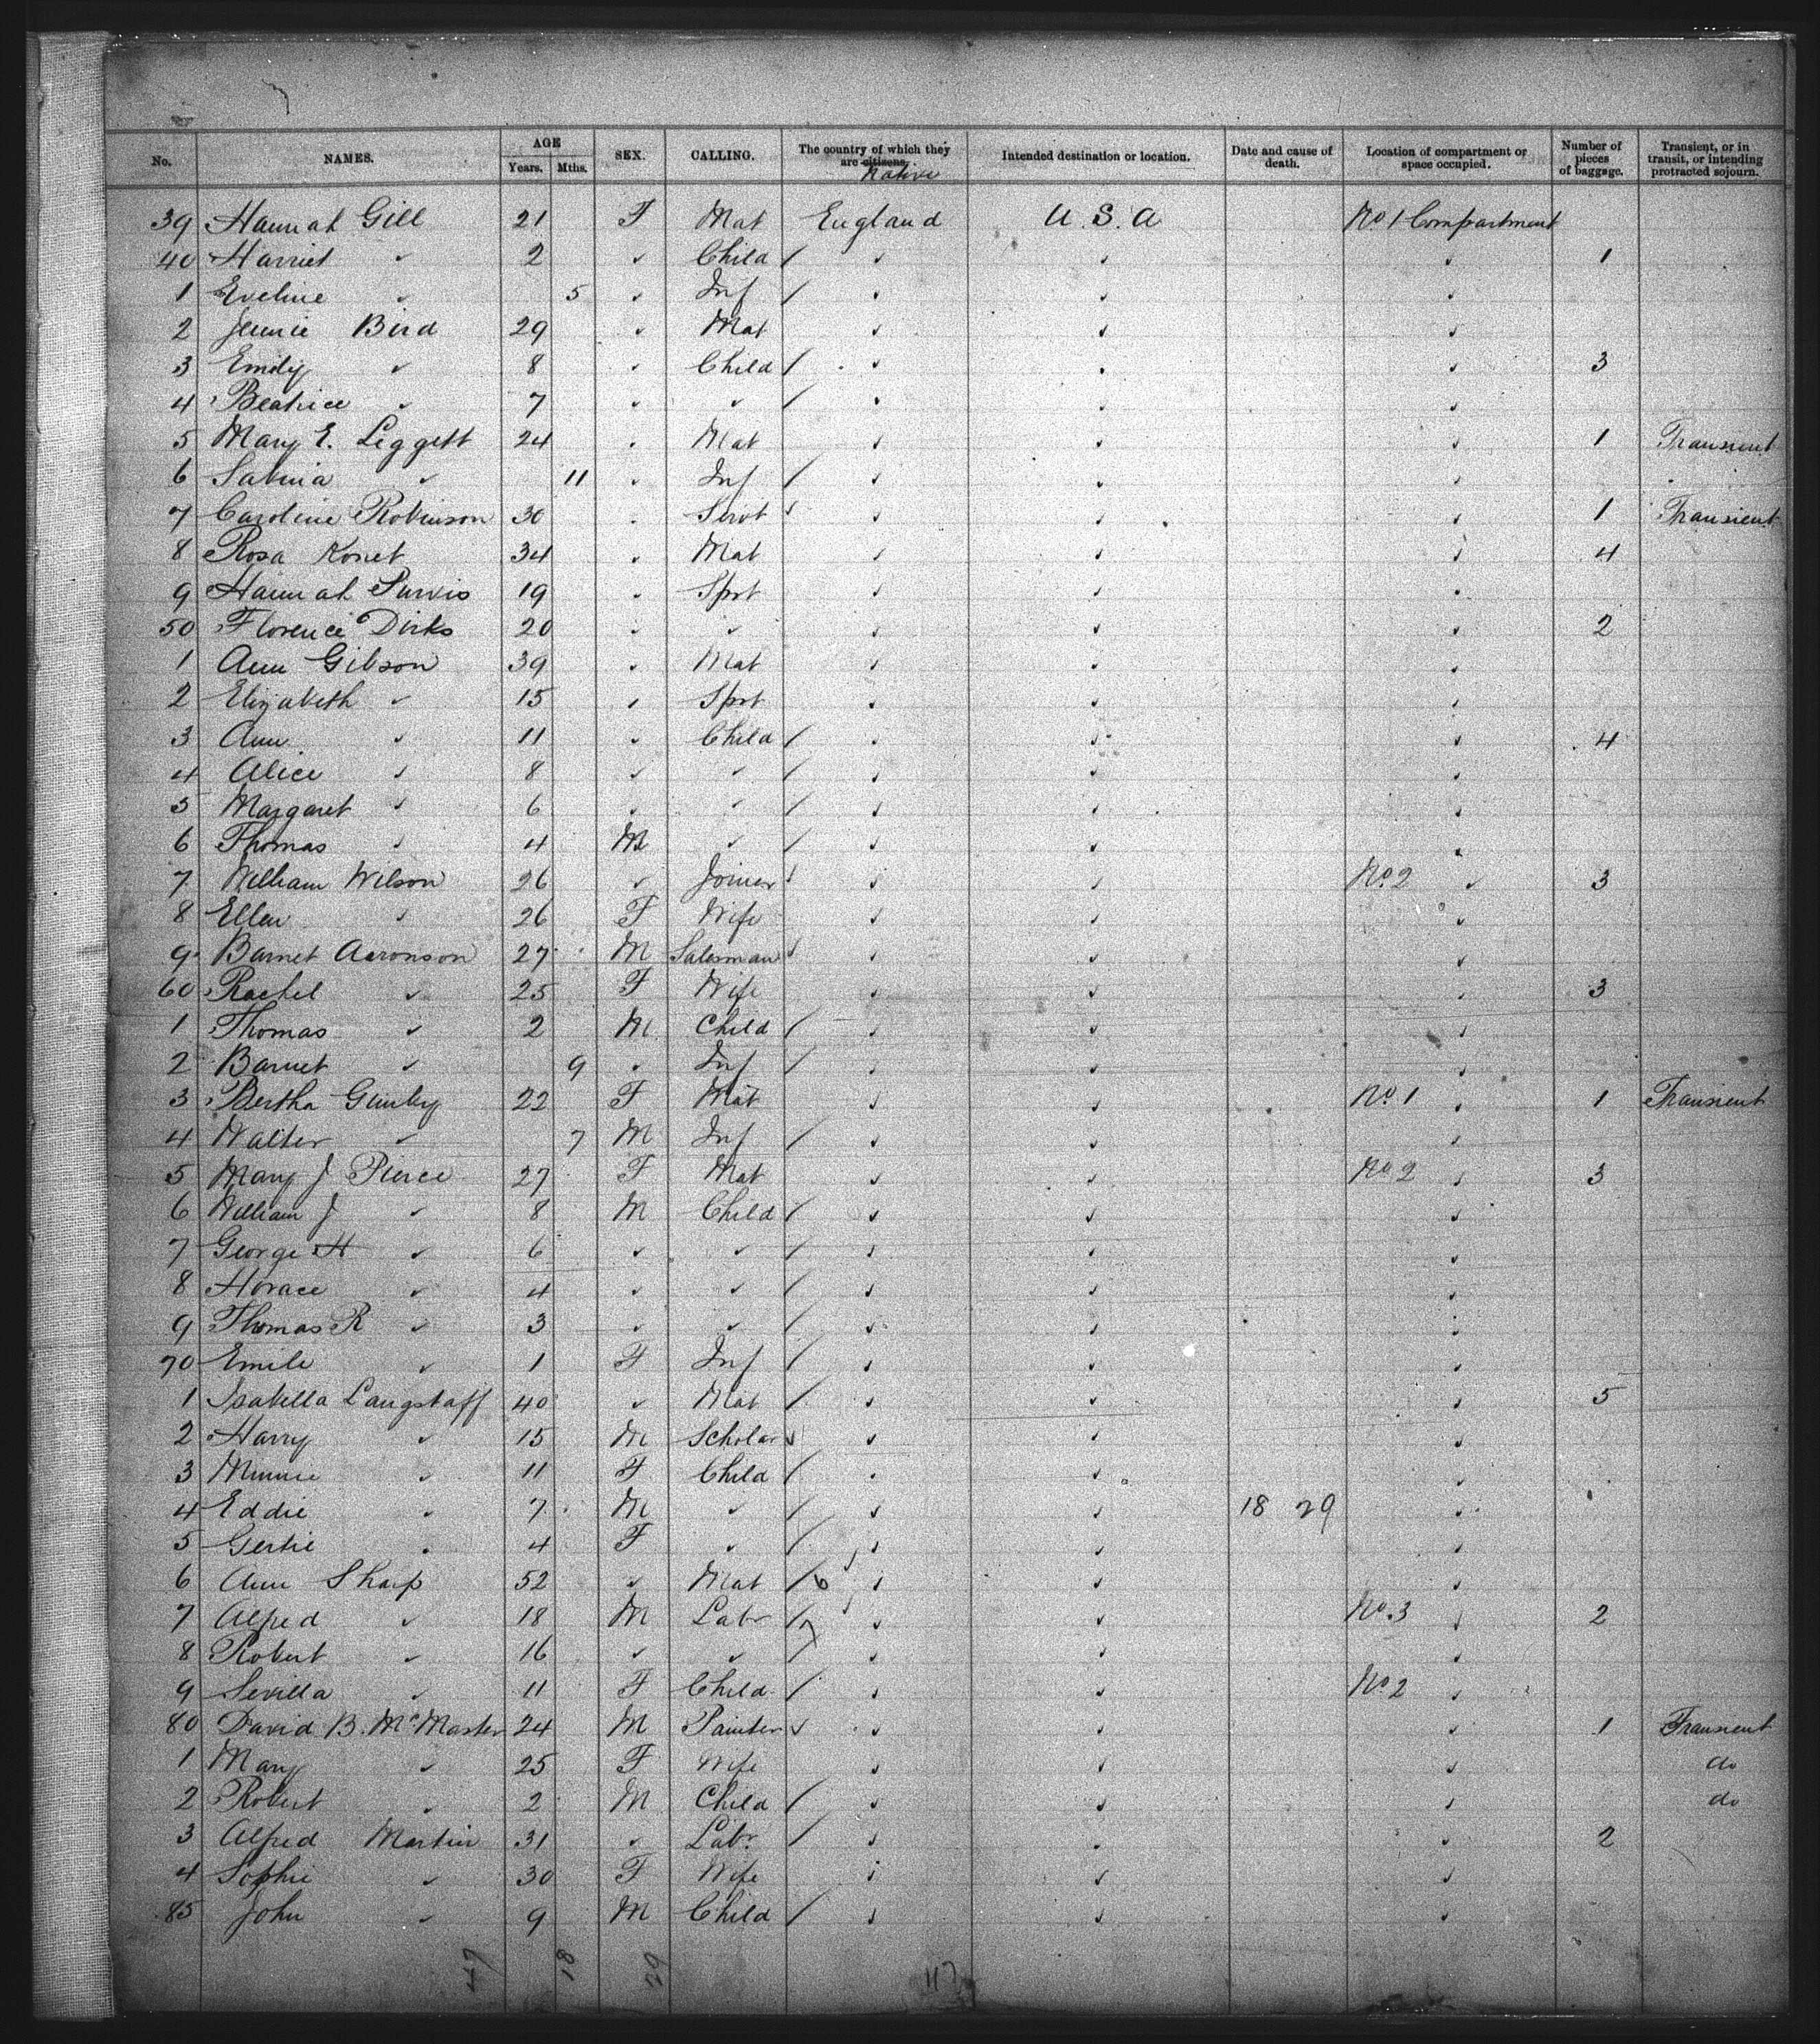 No. NAMES. AGE Years. Mths. SEX. CALLING. The country of which they are citizens. Native Intended destination or location. Date and cause of death. Location of compartment or space occupied. Number of pieces of baggage. Transient, or in transit, or intending protracted sojourn.
39 Hannah Gill 21 F Mat England U.S.A No 1 Compartment
40 Harriet " 2 " Child / " " " 1
1 Eveline " 5 " Inf / " " "
2 Jennie Bird 29 " Mat " " "
3 Emily " 8 " Child / " " " 3
4 Beatrice " 7 " " / " " "
5 Mary E. Leggett 24 " Mat " " " 1 Transient
6 Sabina " 11 " Inf / " " "
7 Caroline Robinson 30 " Servt " " " 1 Transient
8 Rosa Konet 34 " Mat " " " 4
9 Hannah Purvis 19 " Spst " " "
50 Florence Dirks 20 " " " " " 2
1 Ann Gibson 39 " Mat " " "
2 Elizabeth " 15 " Spst " " "
3 Ann " 11 " Child / " " " 4
4 Alice " 8 " " / " " "
5 Margaret " 6 " " / " " "
6 Thomas " 4 M " / " " "
7 William Wilson 26 " Joiner " " No. 2 " 3
8 Ellen " 26 F Wife " " "
9 Barnet Aaronson 27 M Salesman " " "
60 Rachel " 25 F Wife " " " 3
1 Thomas " 2 M Child / " " "
2 Barnet " 9 " Inf / " " "
3 Bertha Gunley 22 F Mat " " No. 1 " 1 Transient
4 Walter " 7 M Inf / " " "
5 Mary J Pierce 27 F Mat " " No. 2 " 3
6 William J " 8 M Child / " " "
7 George H " 6 " " / " " "
8 Horace " 4 " " / " " "
9 Thomas R " 3 " " / " " "
70 Emile " 1 F Inf / " " "
1 Isabella Langstaff 40 " Mat / " " " 5
2 Harry " 15 M Scholar " " "
3 Minnie " 11 F Child / " " "
4 Eddie " 7 M " / " " 18 29 "
5 Gertie " 4 F " / " " "
6 Ann Sharp 52 " Mat / 6 " " "
7 Alfred " 18 M Labr / 7 " " No. 3 " 2
8 Robert " 16 " " / " " "
9 Sevilla " 11 F Child / " " No. 2 "
80 David B. McMaster 24 M Painter " " " 1 Transient
1 Mary " 25 F Wife " " " do
2 Robert " 2 M Child / " " " do
3 Alfred Martin 31 " Labr / " " " 2
4 Sophie " 30 F Wife " " "
85 John " 9 M Child / " " "
47 18 29 47